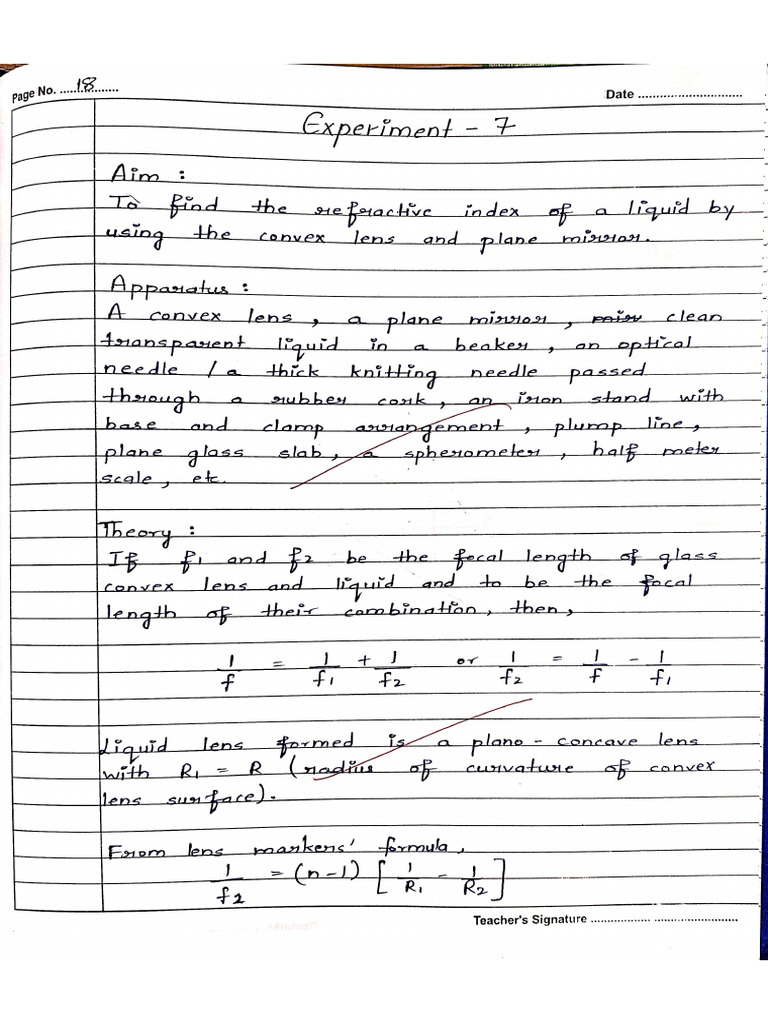 Page No. .....18.........
Date ..............................
Experiment - 7
Aim :
To find the refractive index of a liquid by
using the convex lens and plane mirror.
Apparatus :
A convex lens, a plane mirror, clean
transparent liquid in a beaker, an optical
needle / a thick knitting needle passed
through a rubber cork, an iron stand with
base and clamp arrangement, plump line,
plane glass slab, a spherometer, half meter
scale, etc.
Theory :
If f1 and f2 be the focal length of glass
convex lens and liquid and to be the focal
length of their combination, then,
1/f = 1/f1 + 1/f2 or 1/f2 = 1/f - 1/f1
Liquid lens formed is a plano - concave lens
with R1 = R (radius of curvature of convex
lens surface).
From lens markers' formula,
1/f2 = (n-1) [1/R1 - 1/R2]
Teacher's Signature ..........................................